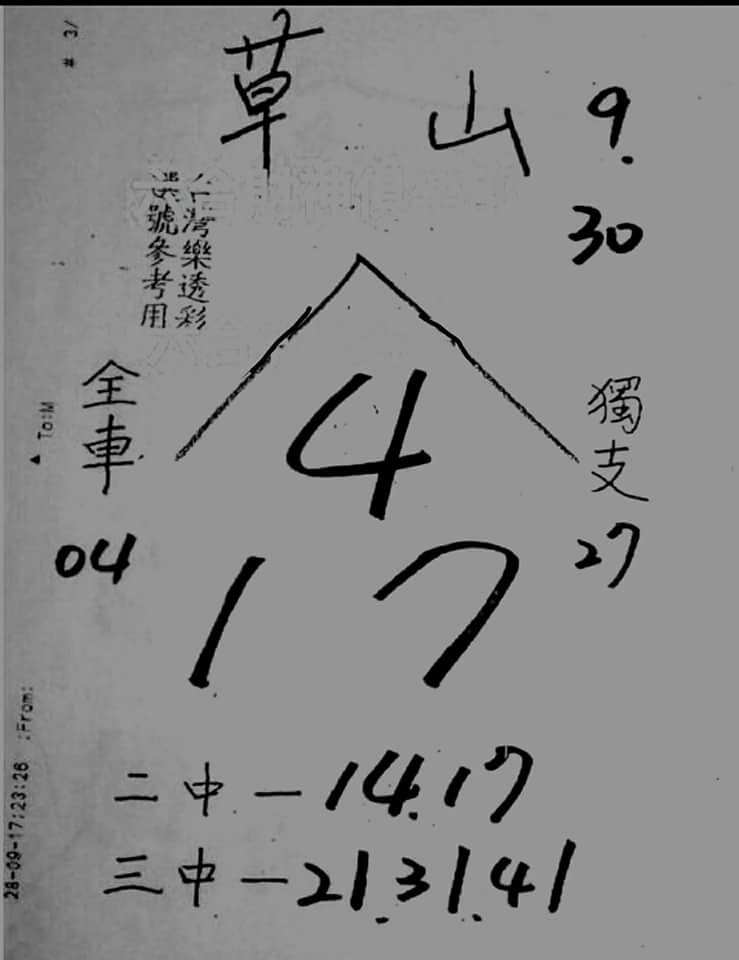 # 3/
草 山 9.
30
台灣樂透彩
選號參考用
全車
04
獨支
27
4
1 7
▲ To:M
28-09-17:23:26 :From:
二中－14.17
三中－21.31.41